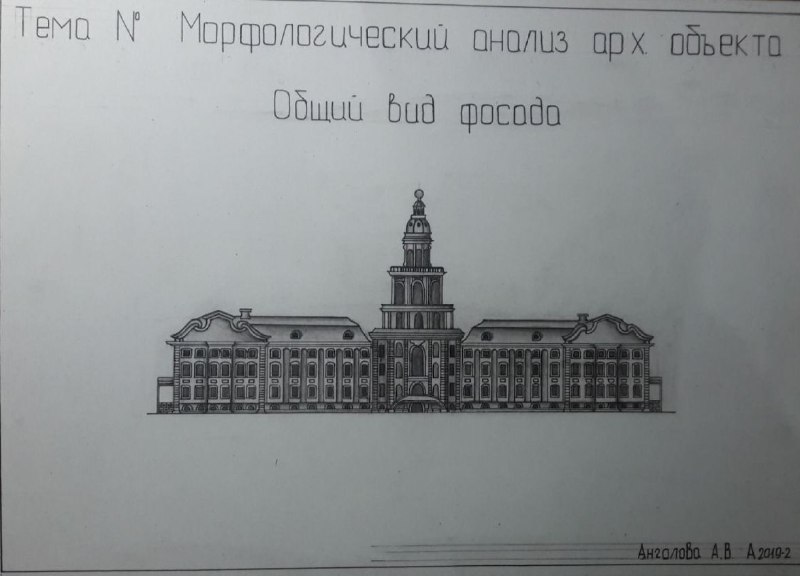 Тема № Морфологический анализ арх. объекта
Общий вид фосада
Анголова А.В. А2019-2